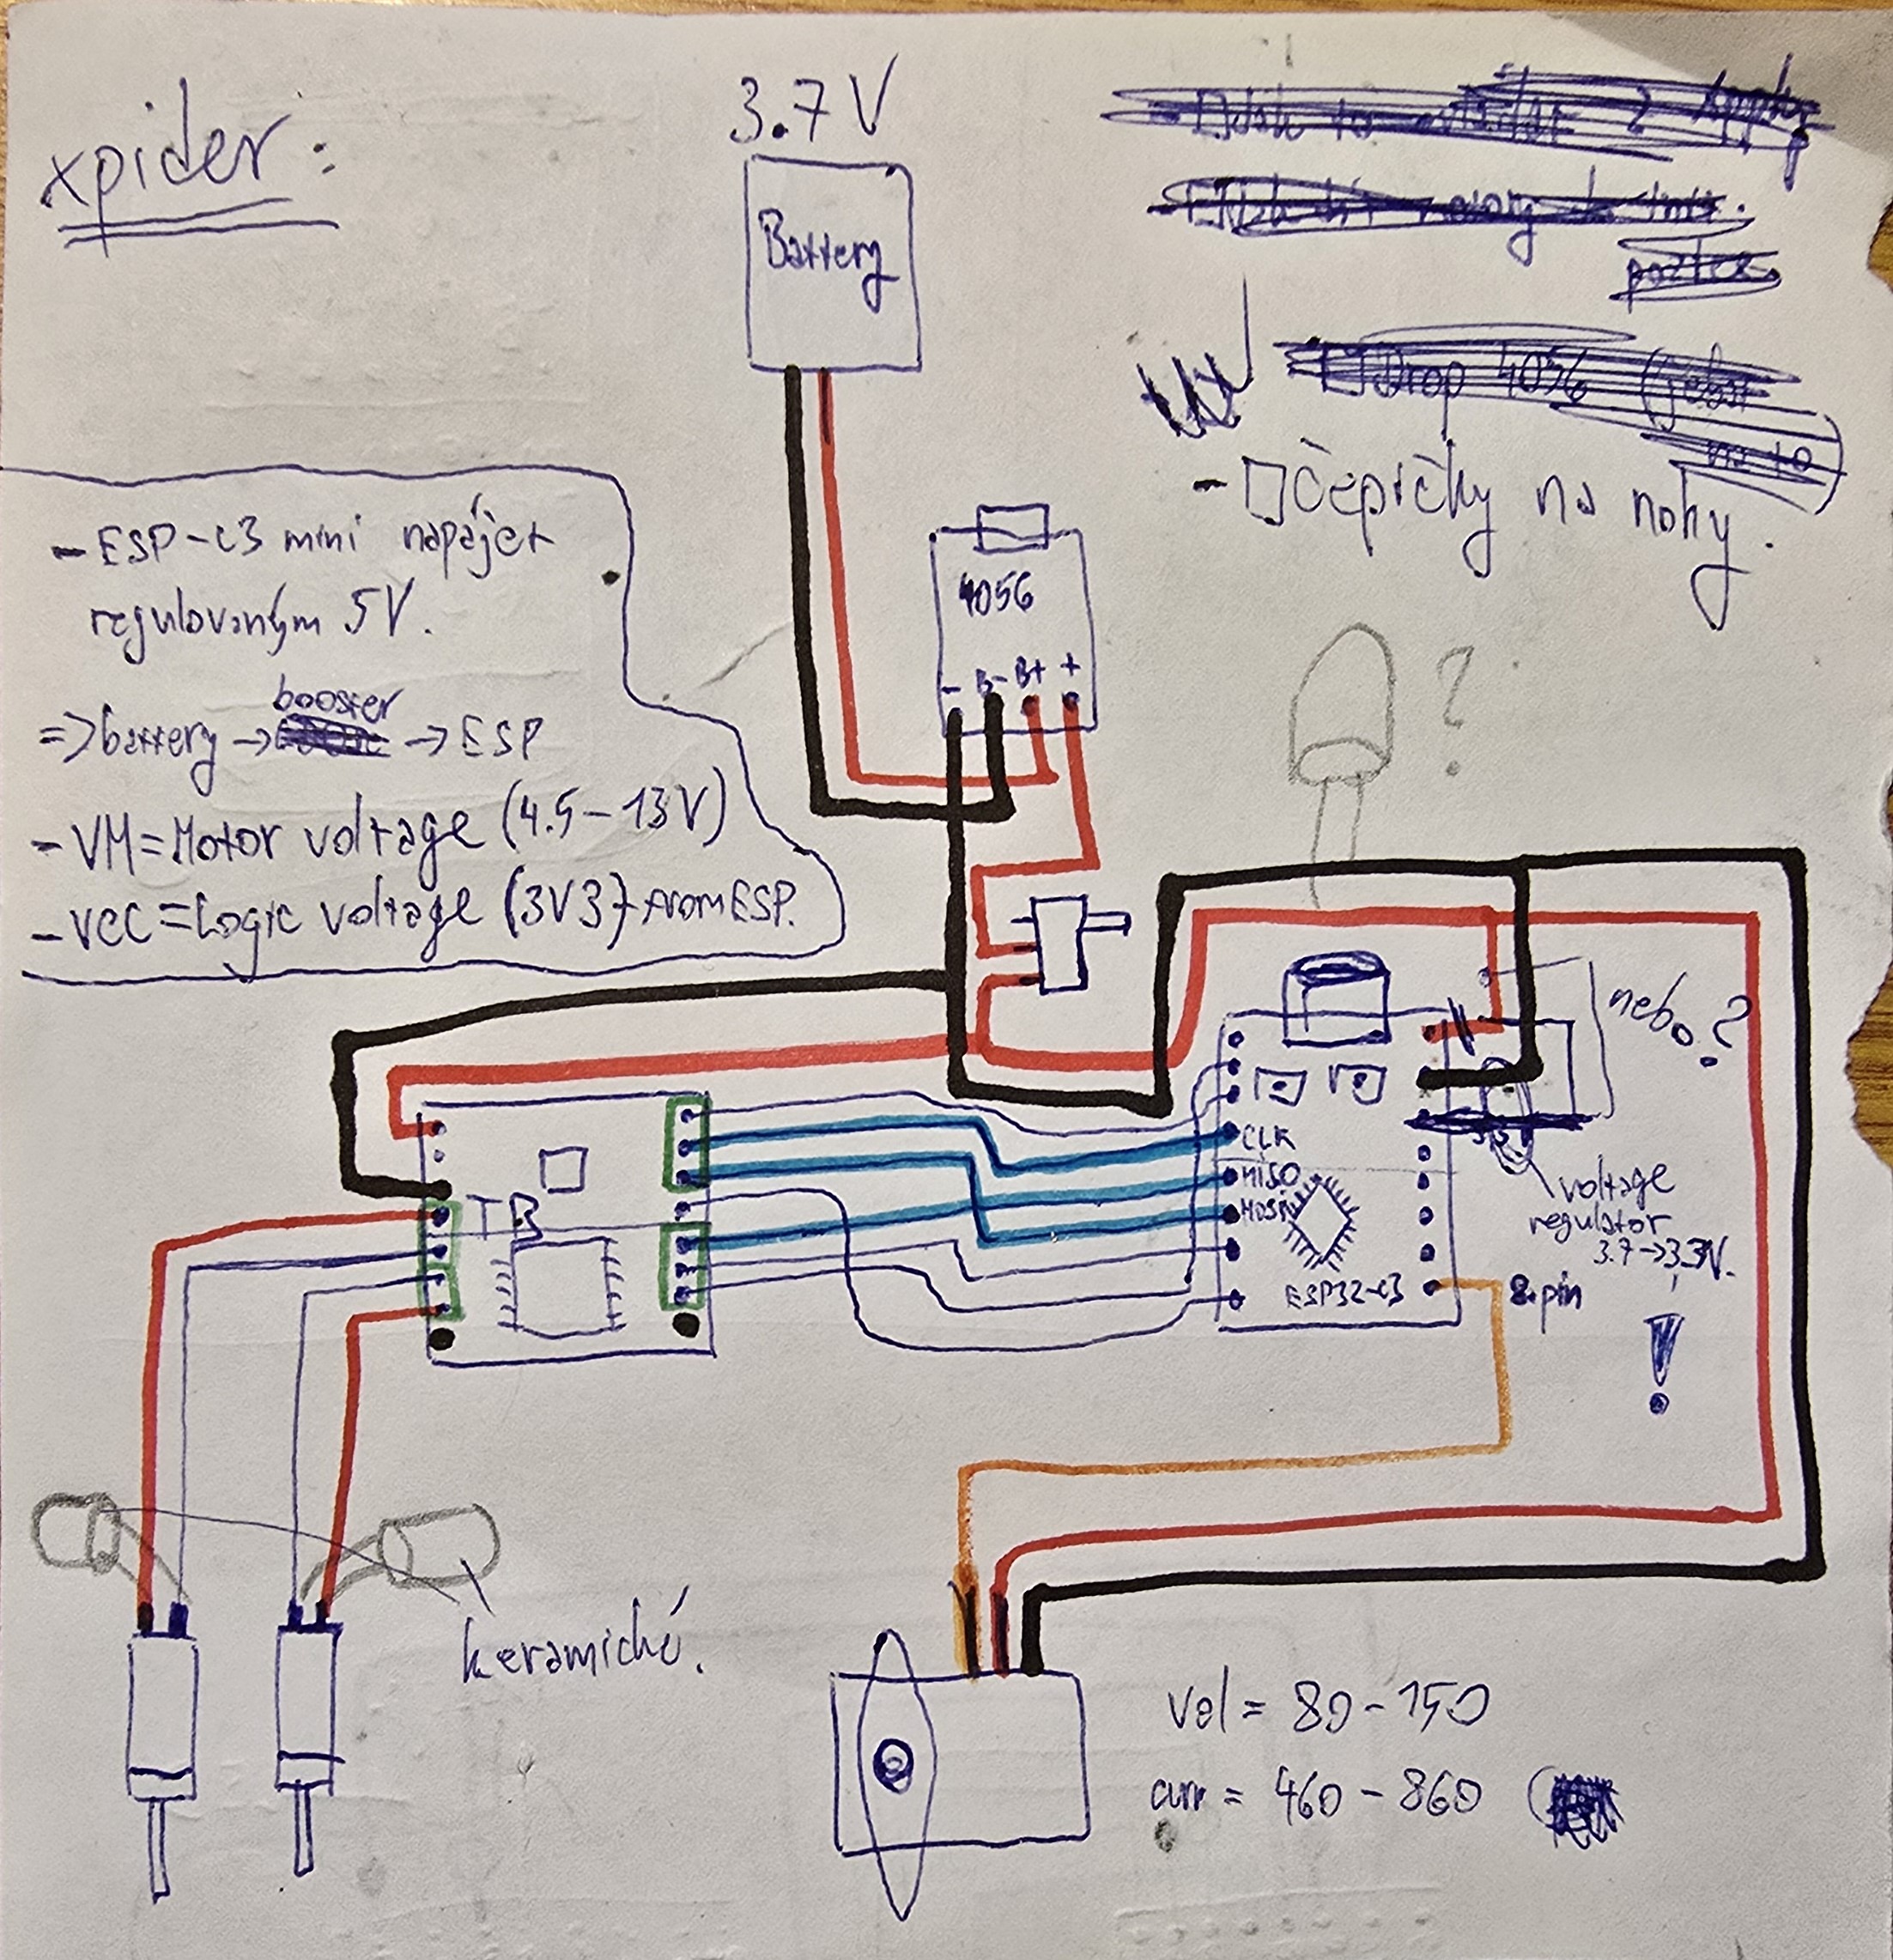 xpider:
3.7 V
Battery
Drop 4056
- □ čepičky na nohy.
- ESP-c3 mini napájet
regulovaným 5V.
=> battery → booster → ESP
- VM = Motor voltage (4.5 - 13 V)
- VCC = Logic voltage (3V3) from ESP.
4056
- B- B+ +
?
nebo?
CLK
MISO
MOSI
ESP32-C3
TB
voltage
regulator
3.7 → 3.3V.
8. pin
!
keramické.
vel = 80 - 150
curr = 460 - 860